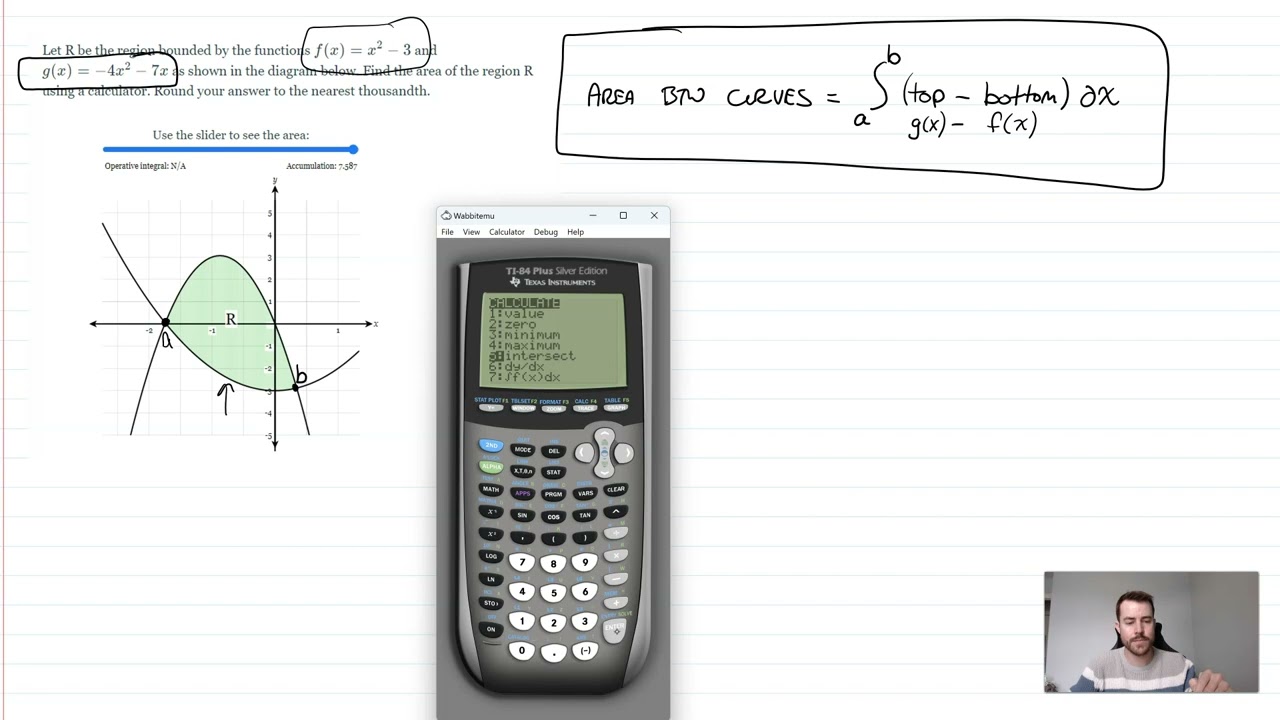 Let R be the region bounded by the functions f(x) = x² − 3 and
g(x) = −4x² − 7x as shown in the diagram below. Find the area of the region R
using a calculator. Round your answer to the nearest thousandth.
AREA BTW CURVES = ∫ₐᵇ (top − bottom) ∂x
g(x) − f(x)
Use the slider to see the area:
Operative integral: N/A Accumulation: 7.587
y
5
4
3
2
1
R
-2 -1 1 x
a
-1
-2
b
-3
-4
-5
Wabbitemu
File View Calculator Debug Help
TI-84 Plus Silver Edition
TEXAS INSTRUMENTS
CALCULATE
1:value
2:zero
3:minimum
4:maximum
5:intersect
6:dy/dx
7:∫f(x)dx
STAT PLOT F1 TBLSET F2 FORMAT F3 CALC F4 TABLE F5
Y= WINDOW ZOOM TRACE GRAPH
2ND MODE DEL
ALPHA X,T,θ,n STAT
MATH APPS PRGM VARS CLEAR
SIN COS TAN ^
x² , ( )
LOG 7 8 9 ×
LN 4 5 6 −
STO› 1 2 3 +
ON 0 . (-) ENTER